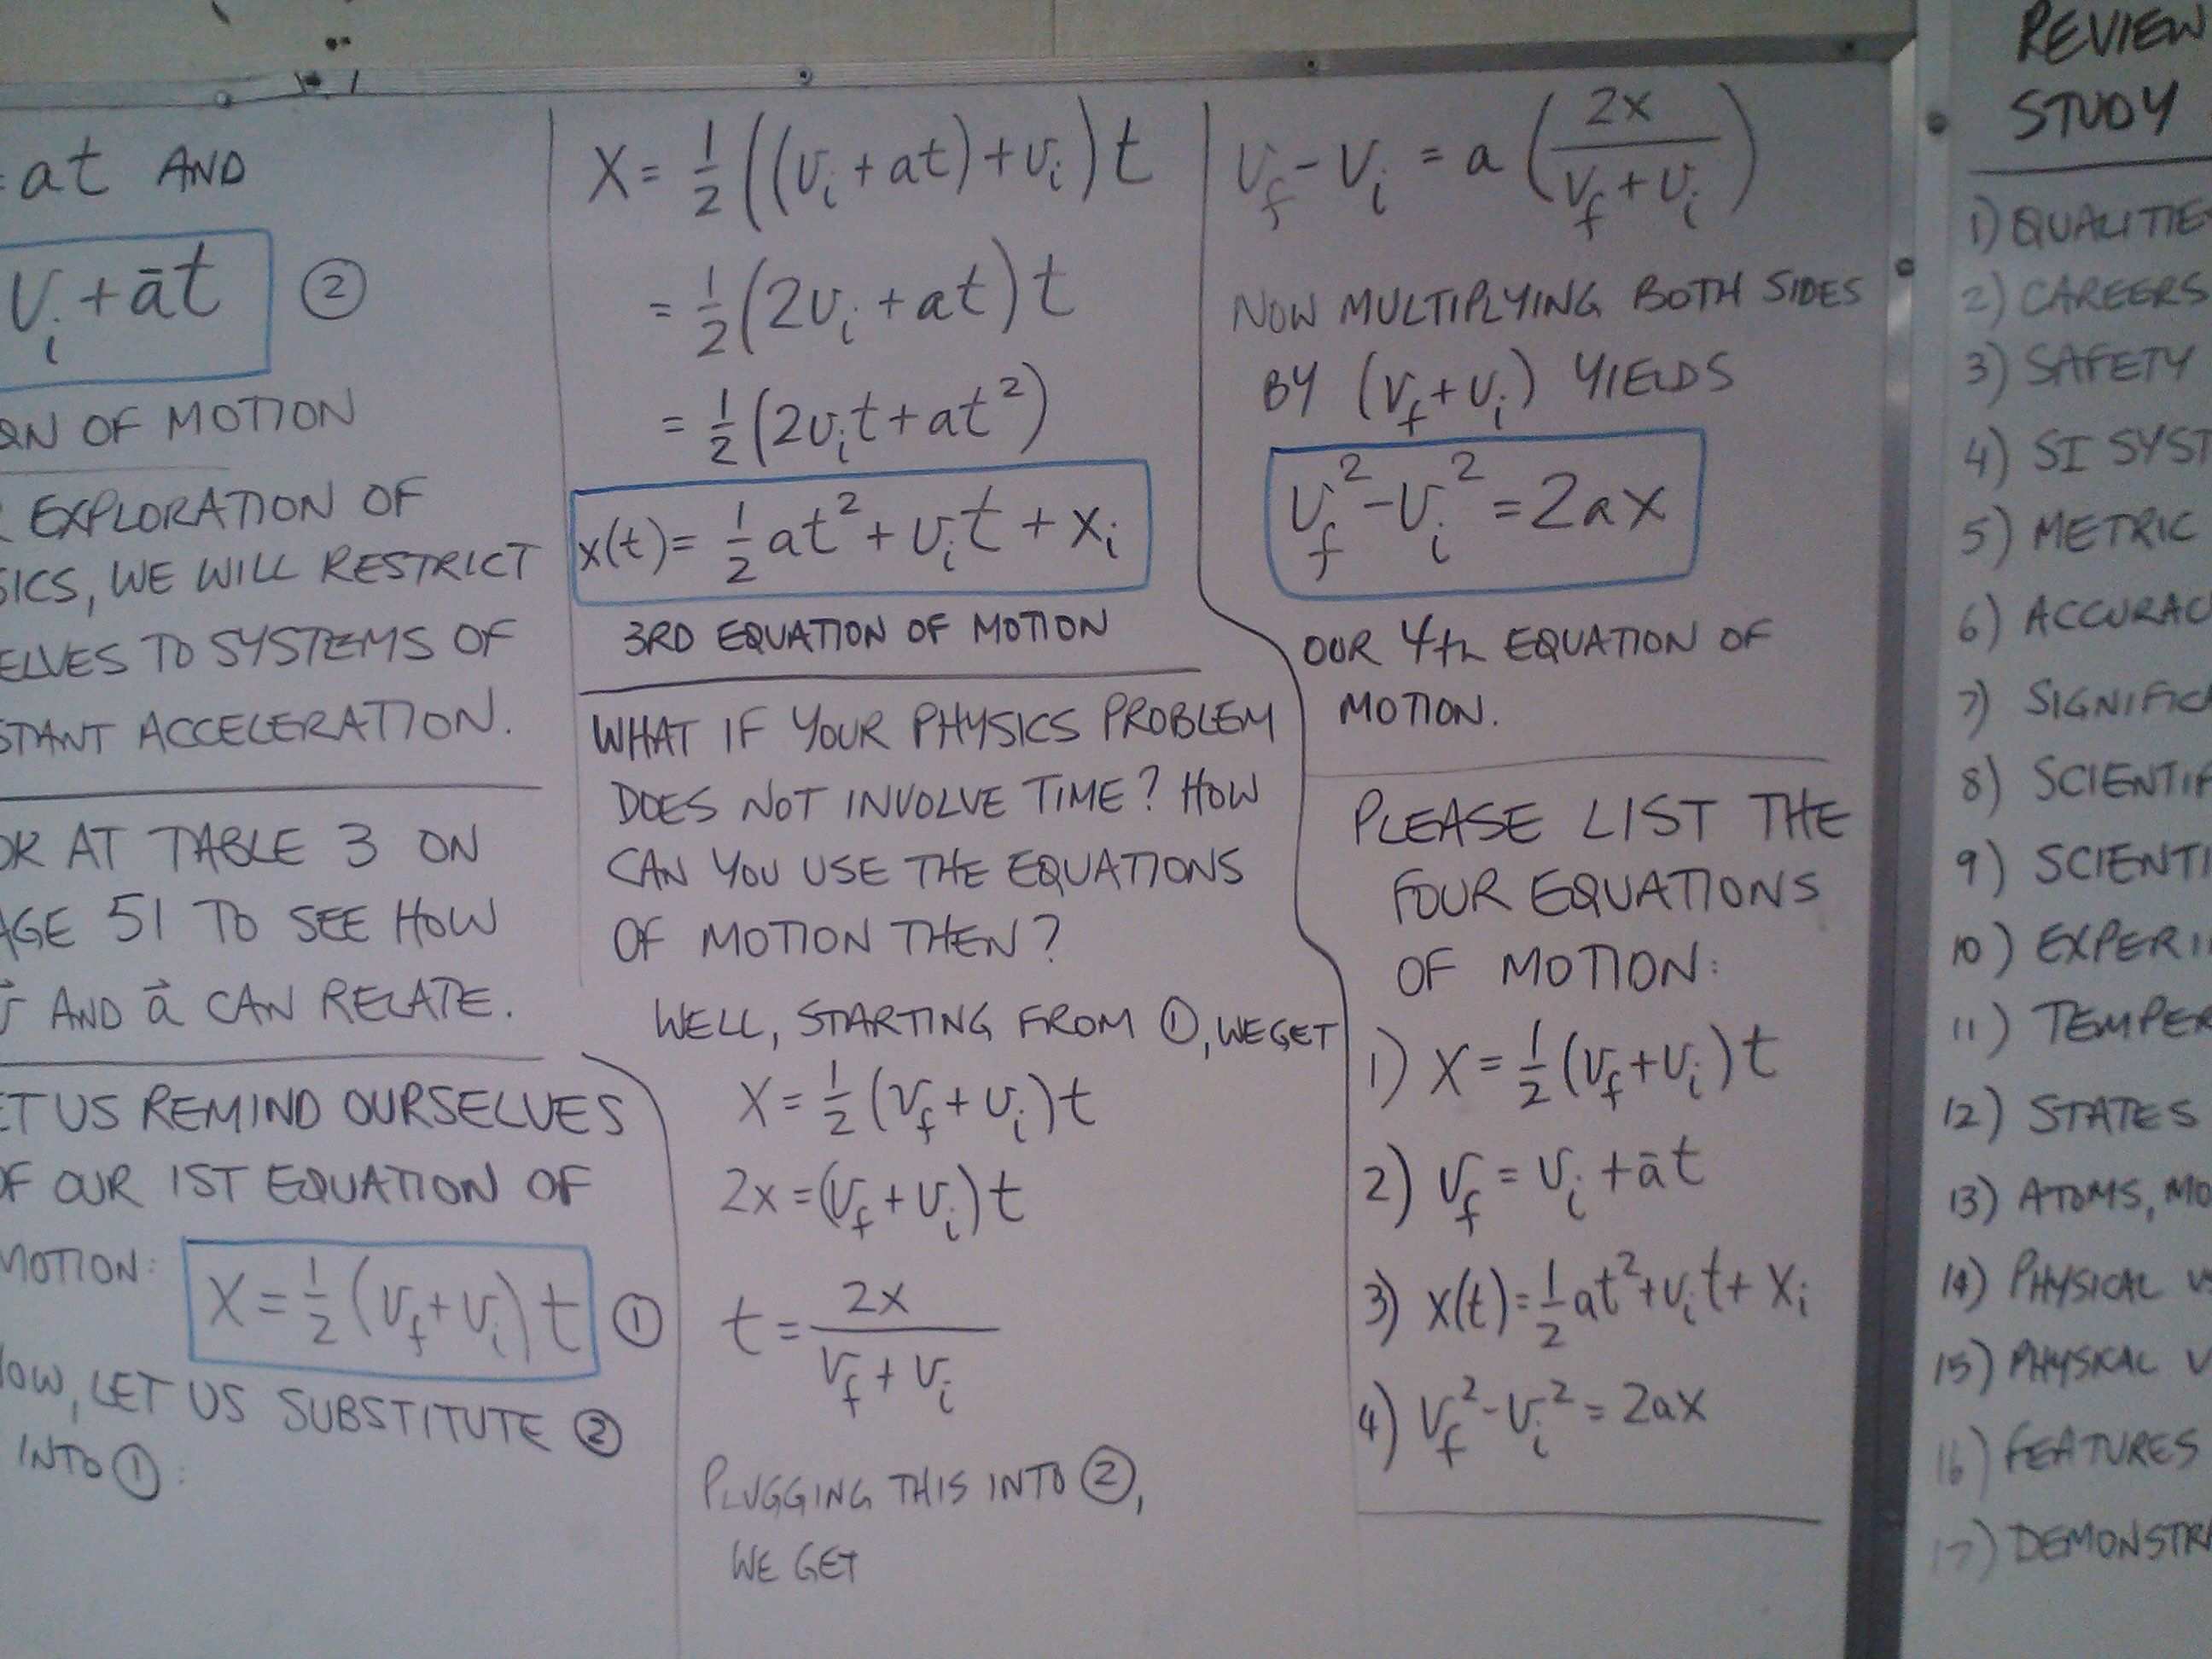 = at AND
Vᵢ + āt ②
QN OF MOTION
EXPLORATION OF
SICS, WE WILL RESTRICT
ELVES TO SYSTEMS OF
STANT ACCELERATION.
OK AT TABLE 3 ON
AGE 51 TO SEE HOW
v⃗ AND a⃗ CAN RELATE.
ET US REMIND OURSELVES
OF OUR 1ST EQUATION OF
MOTION: X = ½ (v_f + vᵢ) t ①
NOW, LET US SUBSTITUTE ②
INTO ①:
X = ½ ((vᵢ + at) + vᵢ) t
= ½ (2vᵢ + at) t
= ½ (2vᵢt + at²)
x(t) = ½ at² + vᵢt + xᵢ
3RD EQUATION OF MOTION
WHAT IF YOUR PHYSICS PROBLEM
DOES NOT INVOLVE TIME? HOW
CAN YOU USE THE EQUATIONS
OF MOTION THEN?
WELL, STARTING FROM ①, WE GET
X = ½ (v_f + vᵢ) t
2x = (v_f + vᵢ) t
t = 2x / (v_f + vᵢ)
PLUGGING THIS INTO ②,
WE GET
v_f - vᵢ = a (2x / (v_f + vᵢ))
NOW MULTIPLYING BOTH SIDES
BY (v_f + vᵢ) YIELDS
v_f² - vᵢ² = 2ax
OUR 4th EQUATION OF
MOTION.
PLEASE LIST THE
FOUR EQUATIONS
OF MOTION:
1) X = ½ (v_f + vᵢ) t
2) v_f = vᵢ + āt
3) x(t) = ½ at² + vᵢt + xᵢ
4) v_f² - vᵢ² = 2ax
REVIEW
STUDY
1) QUALITIE
2) CAREERS
3) SAFETY
4) SI SYST
5) METRIC
6) ACCURAC
7) SIGNIFICA
8) SCIENTIF
9) SCIENTI
10) EXPERI
11) TEMPER
12) STATES
13) ATOMS, MO
14) PHYSICAL V
15) PHYSICAL V
16) FEATURES
17) DEMONSTRA